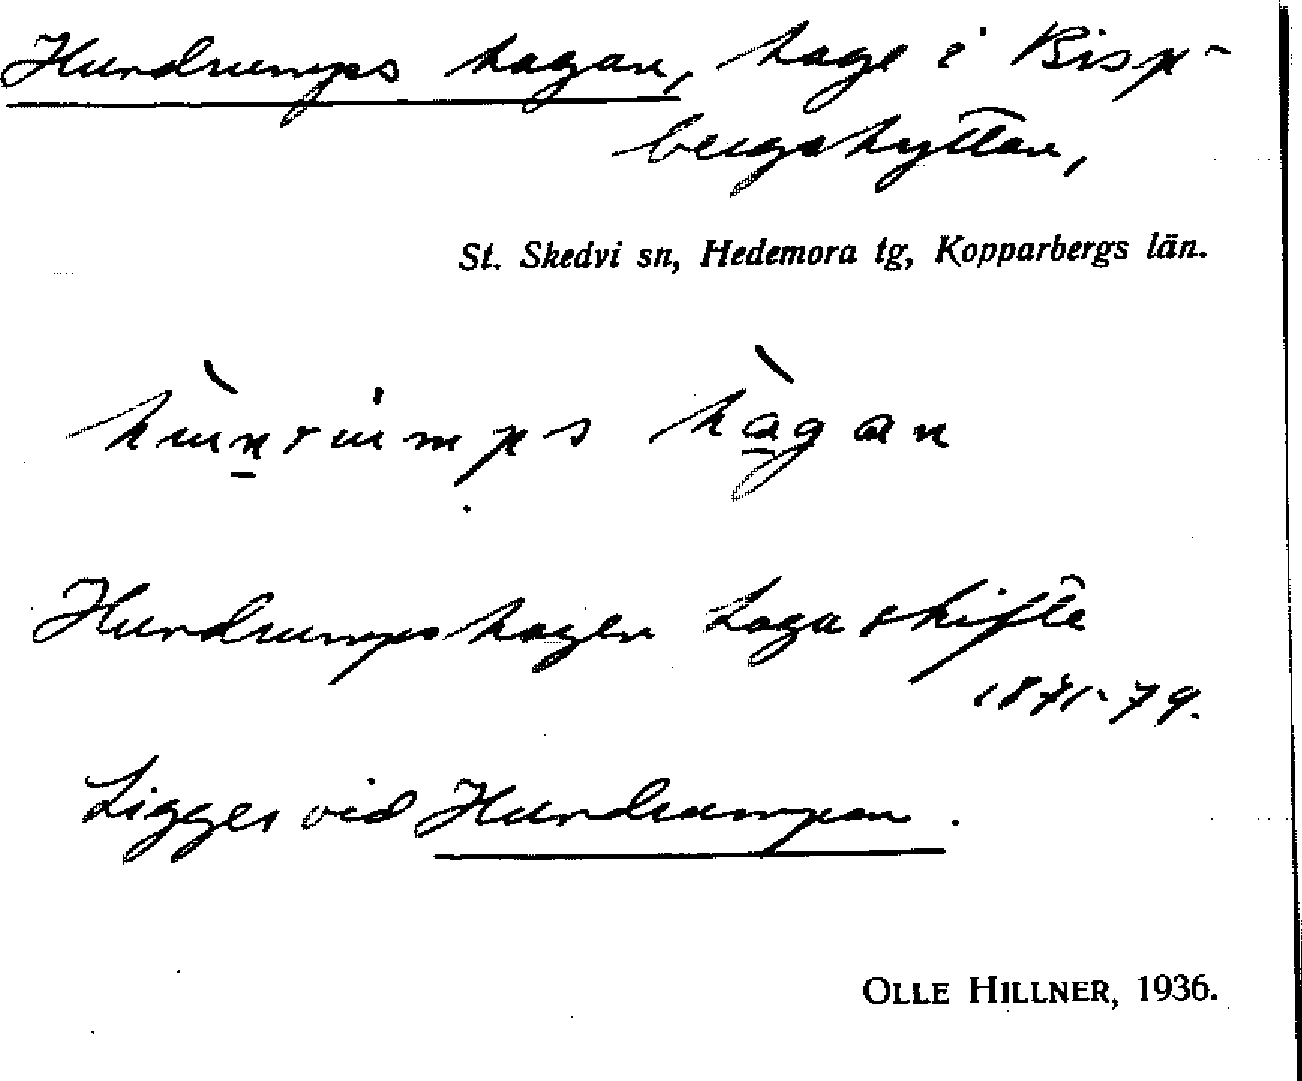 Hundrumps hagan, hage i Bisp-
bergshyttan,
St. Skedvi sn, Hedemora tg, Kopparbergs län.
hùn̲rumps hà̲gan
Hundrumpshagen Laga skifte
1871-79.
Ligger vid Hundrumpan.
OLLE HILLNER, 1936.